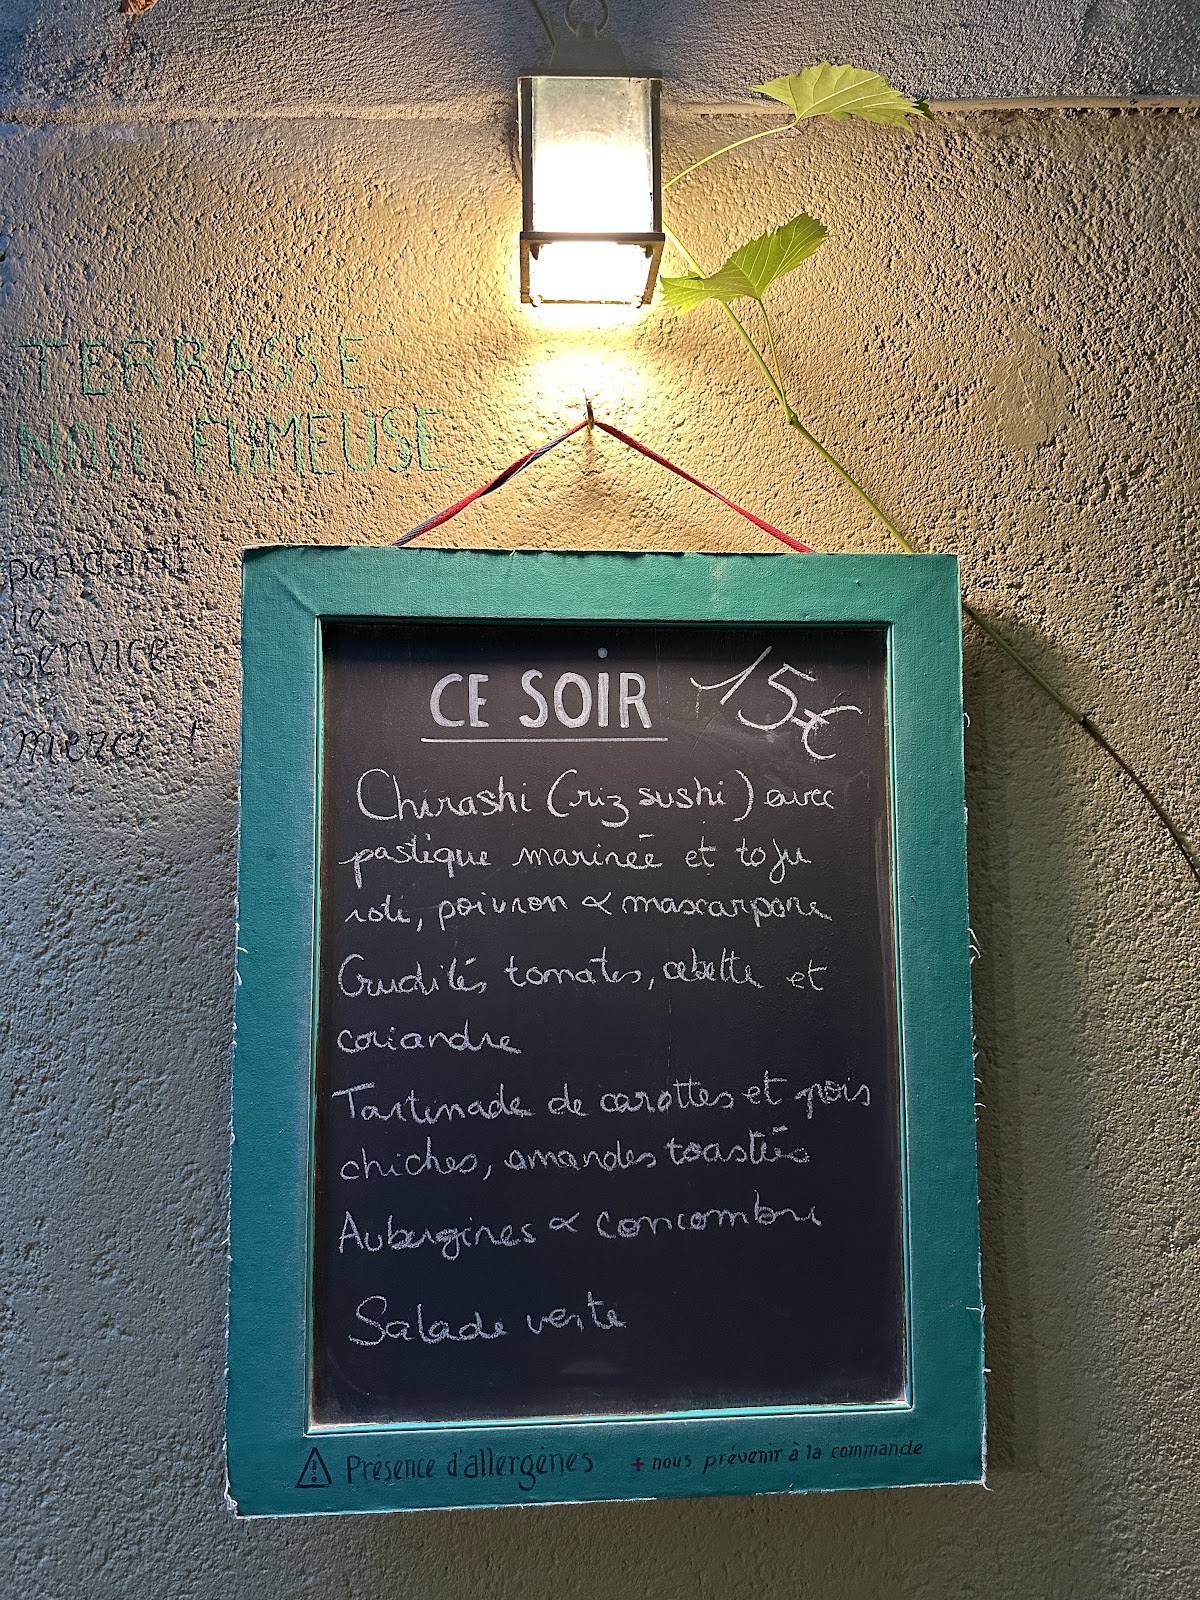 TERRASSE
NON FUMEUSE
pendant
le
service
merci !
CE SOIR 15€
Chirashi (riz sushi) avec
pastèque marinée et tofu
roti, poivron & mascarpone
Crudités tomates, cebette et
coriandre
Tartinade de carottes et pois
chiches, amandes toastées
Aubergines & concombre
Salade verte
Présence d'allergènes + nous prévenir à la commande